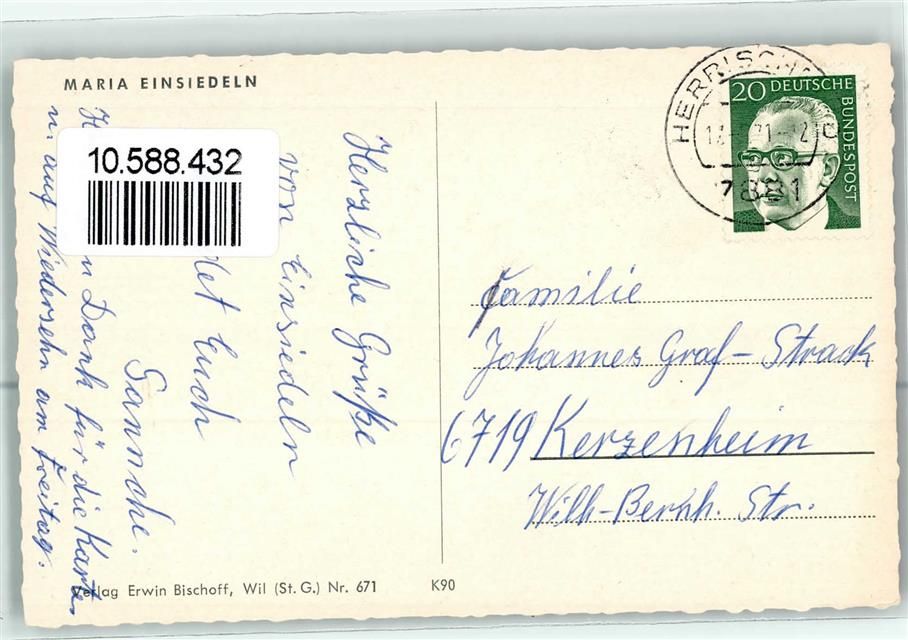 MARIA EINSIEDELN
10.588.432
Herzliche Grüße
von Einsiedeln
Euch
Dank für die Karte
u. auf Wiedersehn am Freitag.
20 DEUTSCHE
BUNDESPOST
7881
Familie
Johannes Graf-Strack
6719 Kerzenheim
Wilh-Bernh. Str.
Verlag Erwin Bischoff, Wil (St. G.) Nr. 671
K90